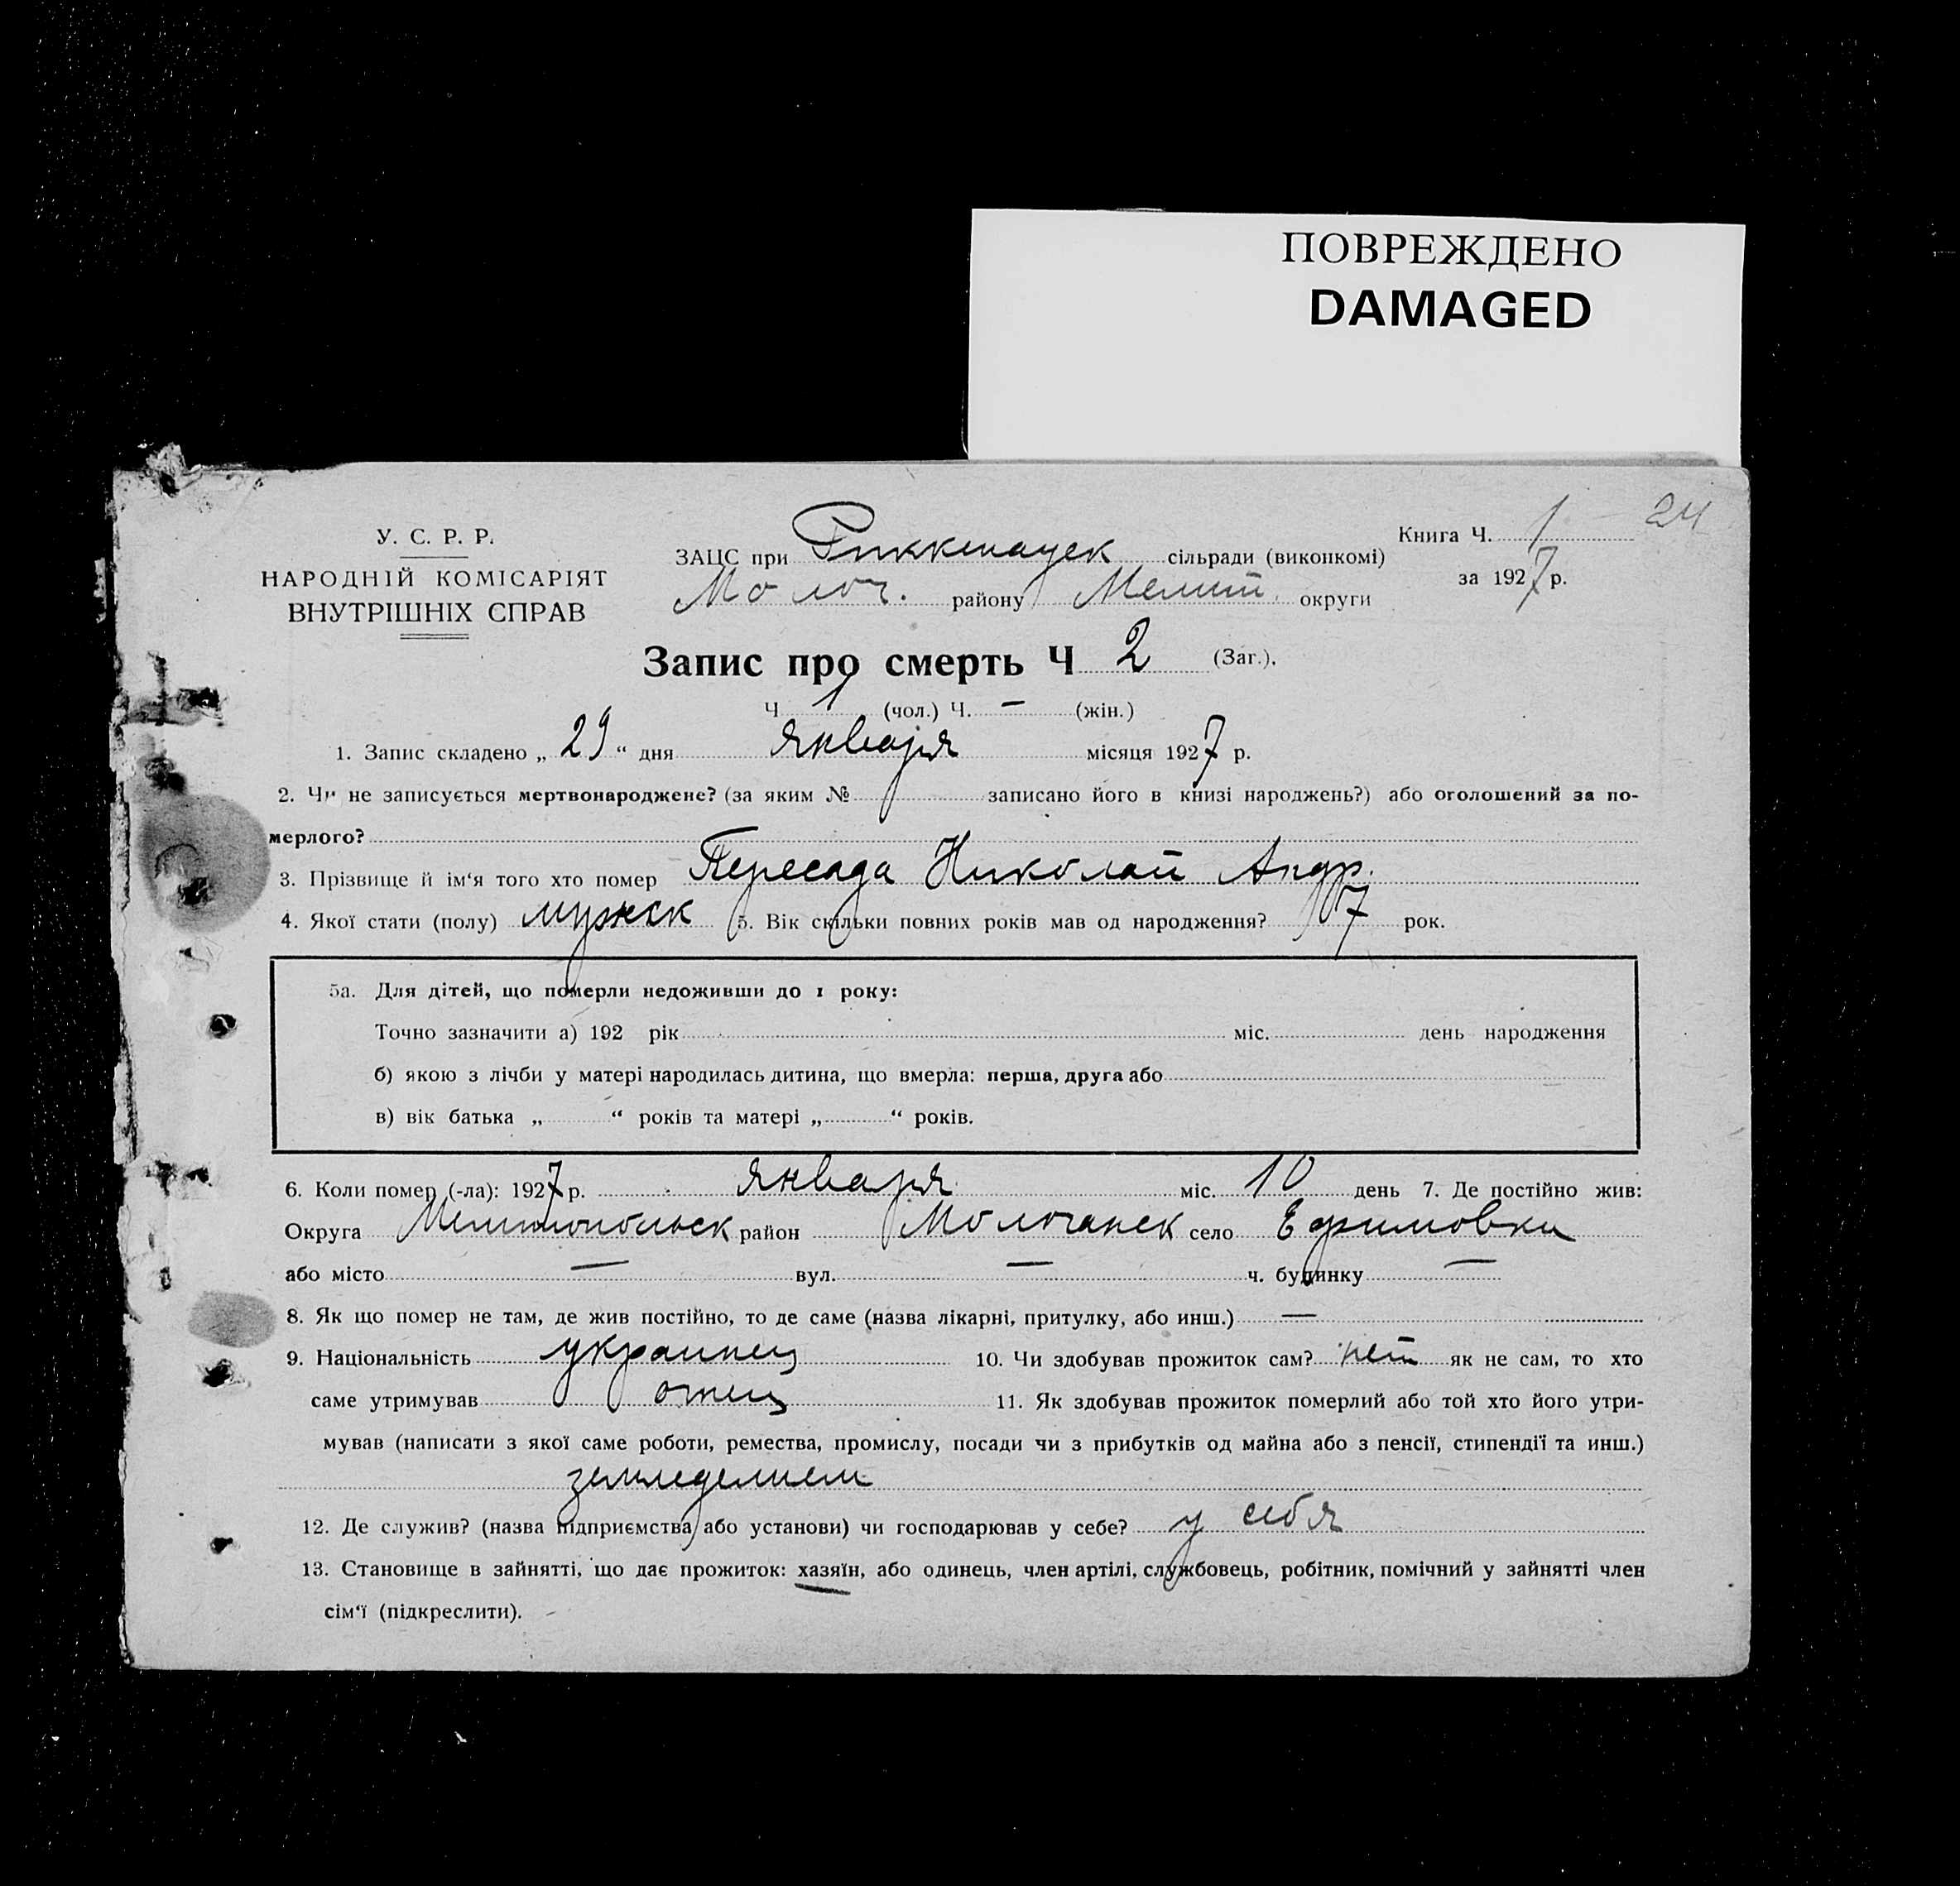 ПОВРЕЖДЕНО
DAMAGED
24
У. С. Р. Р.
НАРОДНІЙ КОМІСАРІЯТ
ВНУТРІШНІХ СПРАВ
ЗАЦС при Риккенауск сільради (виконкомі)
Молоч. району Мелит. округи
Книга Ч. 1
за 1927 р.
Запис про смерть Ч 2 (Заг.).
Ч 1 (чол.) Ч. — (жін.)
1. Запис складено „ 29 “ дня Января місяця 1927 р.
2. Чи не записується мертвонароджене? (за яким № записано його в книзі народжень?) або оголошений за по-
мерлого?
3. Прізвище й ім‘я того хто помер Пересада Николай Андр.
4. Якої стати (полу) мужск 5. Вік скільки повних років мав од народження? 7 рок.
5а. Для дітей, що померли недоживши до 1 року:
Точно зазначити а) 192 рік міс. день народження
б) якою з лічби у матері народилась дитина, що вмерла: перша, друга або
в) вік батька „ “ років та матері „ “ років.
6. Коли помер (-ла): 1927 р. Января міс. 10 день 7. Де постійно жив:
Округа Мелитопольск район Молочанск село Ефимовка
або місто — вул. — ч. будинку —
8. Як що помер не там, де жив постійно, то де саме (назва лікарні, притулку, або инш.) —
9. Національність украинец 10. Чи здобував прожиток сам? нет як не сам, то хто
саме утримував отец 11. Як здобував прожиток померлий або той хто його утри-
мував (написати з якої саме роботи, ремества, промислу, посади чи з прибутків од майна або з пенсії, стипендії та инш.)
земледелием
12. Де служив? (назва підприємства або установи) чи господарював у себе? у себя
13. Становище в зайнятті, що дає прожиток: хазяїн, або одинець, член артілі, службовець, робітник, помічний у зайнятті член
сім‘ї (підкреслити).